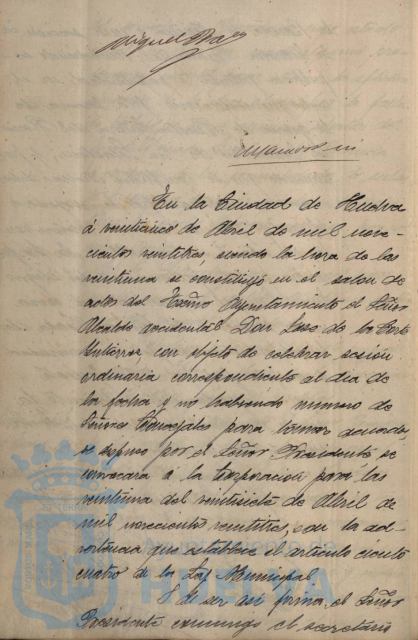 Miguel Báez
En la Ciudad de Huelva
á veinticinco de Abril de mil nove-
cientos veintitres, siendo la hora de las
veintiuna se constituyó en el salon de
actos del Excmo Ayuntamiento el Señor
Alcalde accidental Don José de la Corte
Gutierrez, con objeto de celebrar sesión
ordinaria correspondiente al dia de
la fecha y no habiendo numero de
Señores Concejales para tomar acuerdo,
se dispuso por el Señor Presidente se
convocara á la Corporación para las
veintiuna del veintisiete de Abril de
mil novecientos veintitres, con la ad-
vertencia que establece el artículo ciento
cuatro de la Ley Municipal.
Y de ser asi firma el Señor
Presidente conmigo el secretario
HUELVA